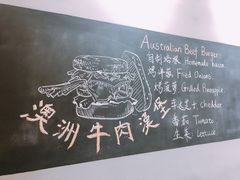 Australian Beef Burger
自制培根 Homemade bacon
烤洋葱 Fried Onions
烤菠萝 Grilled Pineapple
车达芝士 cheddar
番茄 Tomato
生菜 Lettuce
澳洲牛肉漢堡